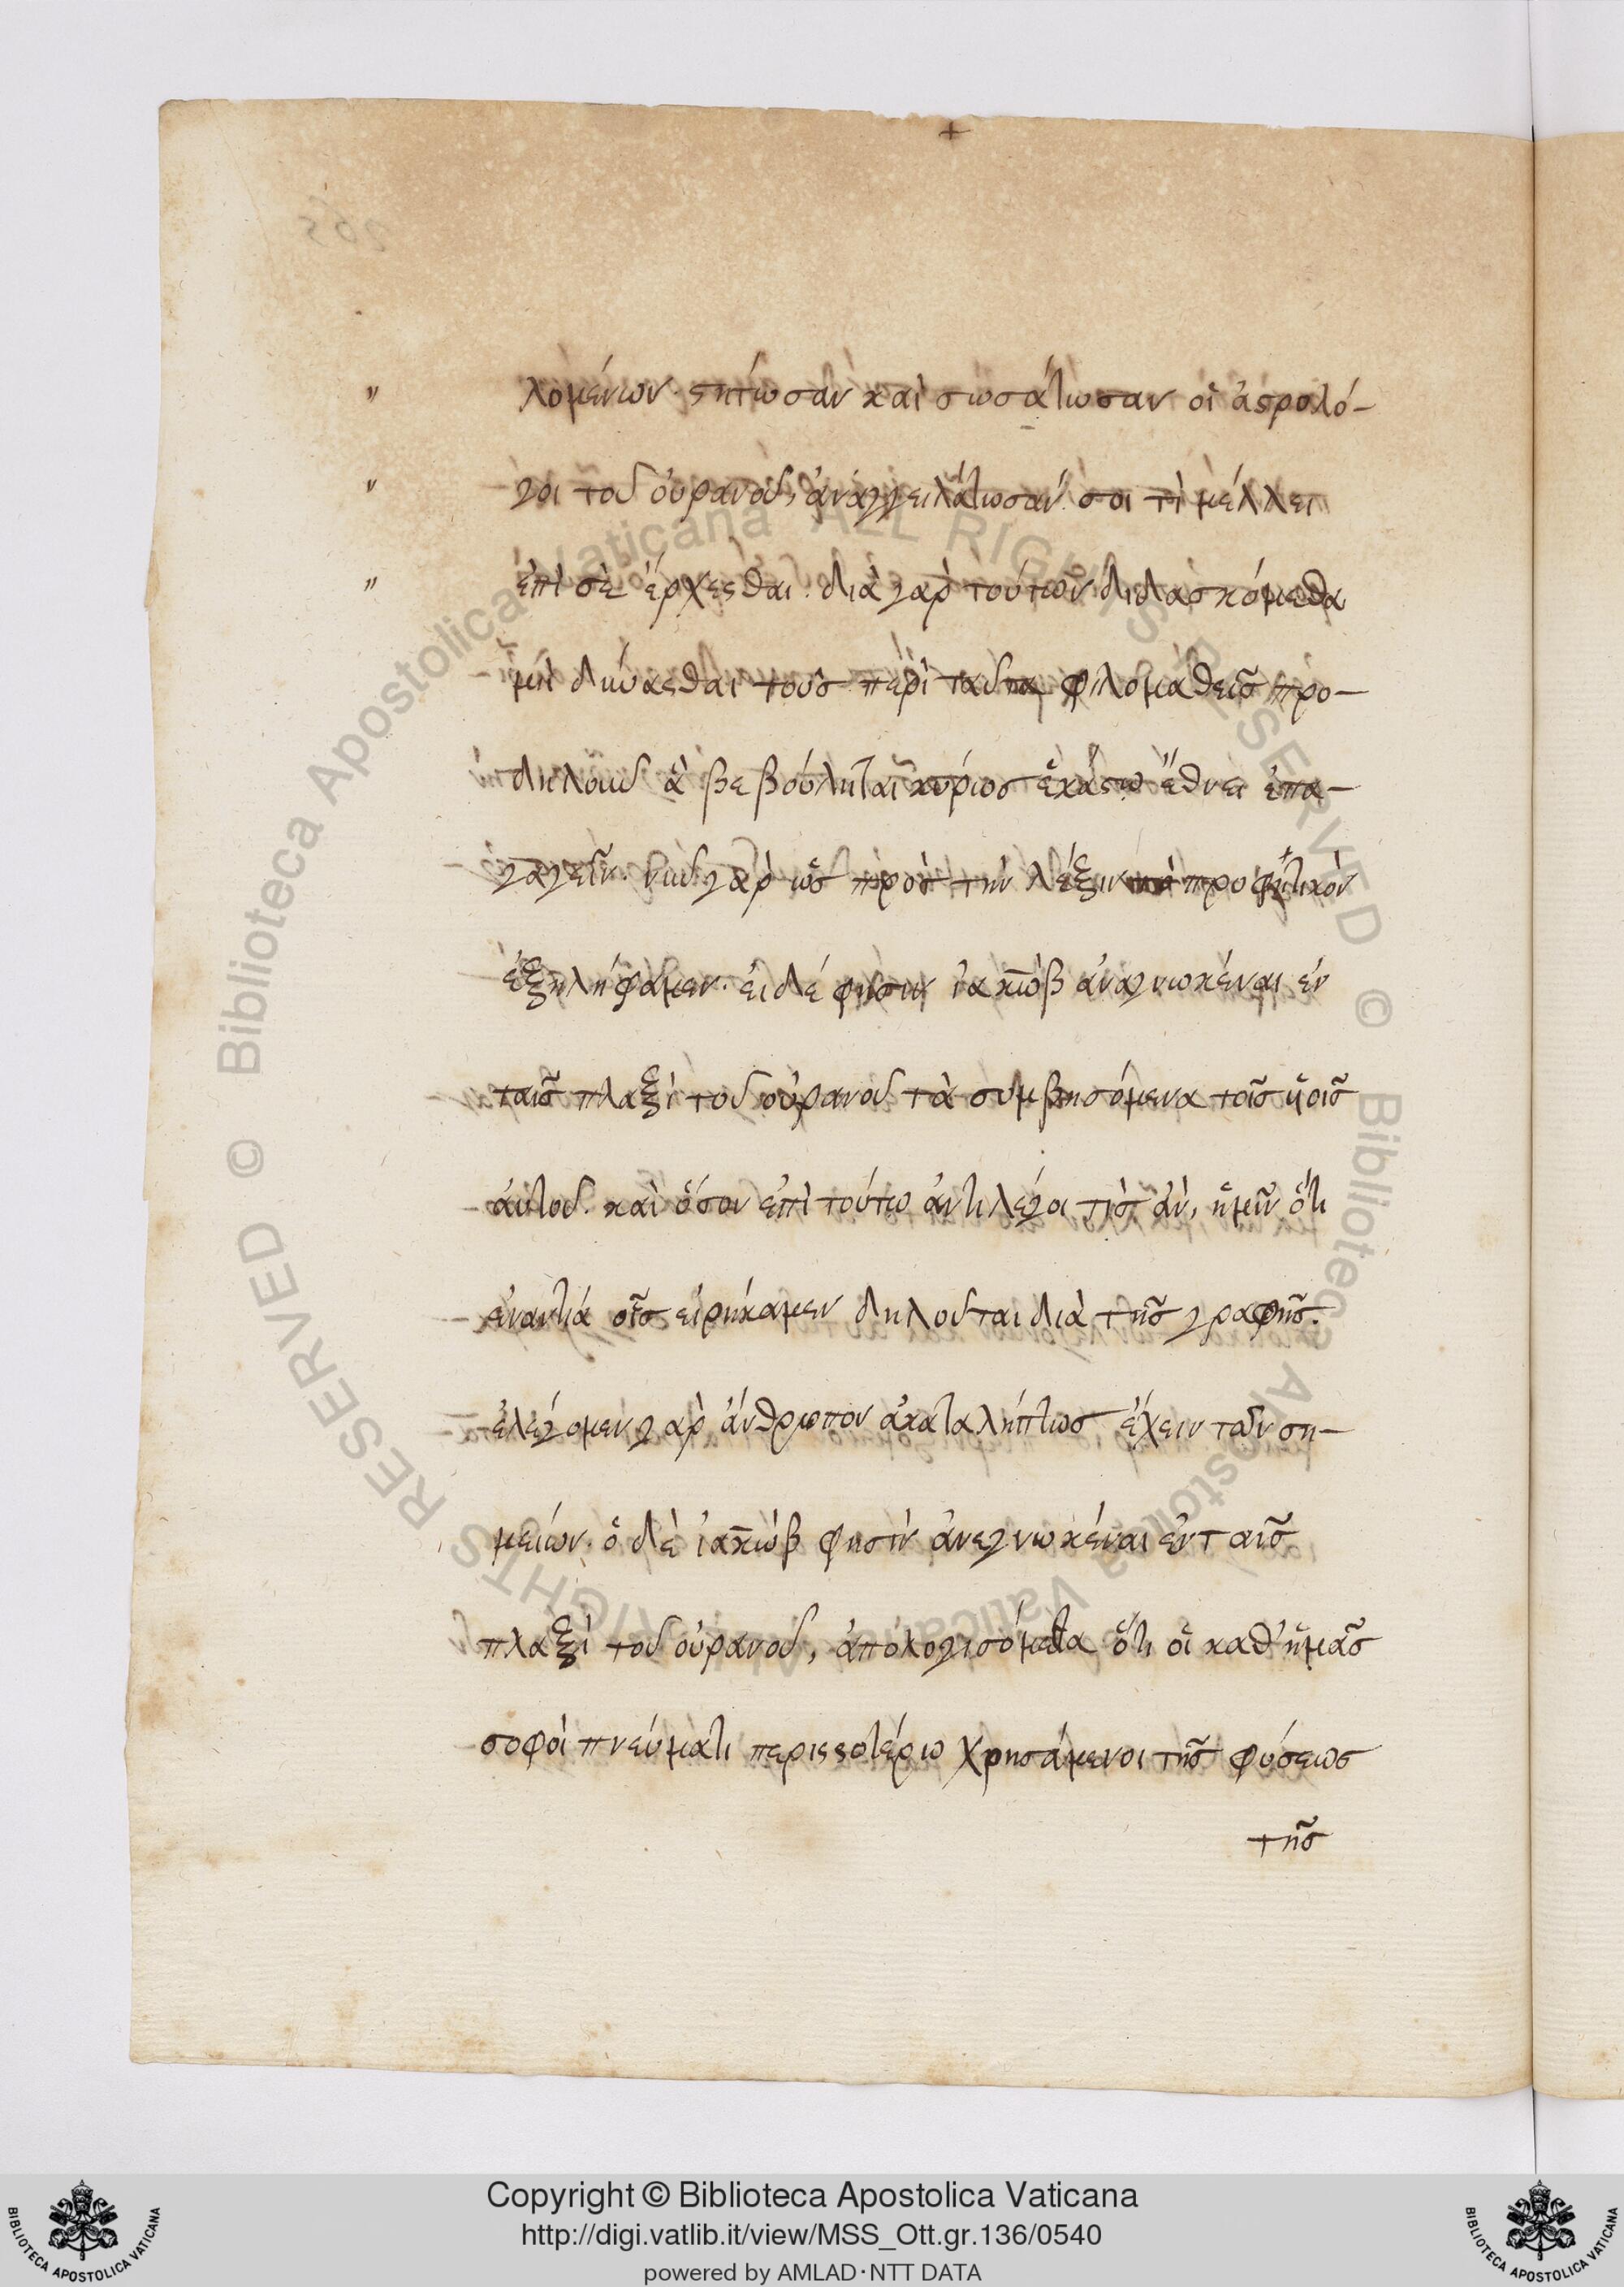 +
λομένων· στήτωσαν καὶ σωσάτωσαν οἱ ἀστρολό-
γοι τοῦ οὐρανοῦ, ἀναγγειλάτωσάν σοι τί μέλλει
ἐπὶ σὲ ἔρχεσθαι. διὰ γὰρ τούτων διδασκόμεθα
μὴ δύνασθαι τοὺς περὶ ταῦτα φιλομαθεῖς προ-
δηλοῦν ἃ βεβούληται κύριος ἑκάστῳ ἔθνει ἐπα-
γαγεῖν. νῦν γὰρ ὡς πρὸς τὴν λέξιν προφητικὸν
ἐξειλήφαμεν· εἰ δέ φησιν ἰακὼβ ἀναγνωκέναι ἐν
ταῖς πλαξὶ τοῦ οὐρανοῦ τὰ συμβησόμενα τοῖς υἱοῖς
αὐτοῦ. καὶ ὅσον ἐπὶ τούτω ἀντιλέγοι τὶς ἂν, ἡμῖν ὅτι
ἐναντία οἷς εἰρήκαμεν δηλοῦται διὰ τῆς γραφῆς.
ἐλέγομεν γὰρ ἄνθρωπον ἀκαταλήπτως ἔχειν τῶν ση-
μείων· ὁ δὲ ἰακὼβ φησὶν ἀνεγνωκέναι ἐν ταῖς
πλαξὶ τοῦ οὐρανοῦ, ἀπολογισόμεθα ὅτι οἱ καθ' ἡμᾶς
σοφοὶ πνεύματι περισσοτέρω χρησάμενοι τῆς φύσεως
τῆς
Copyright © Biblioteca Apostolica Vaticana
http://digi.vatlib.it/view/MSS_Ott.gr.136/0540
powered by AMLAD·NTT DATA
BIBLIOTECA APOSTOLICA VATICANA
BIBLIOTECA APOSTOLICA VATICANA